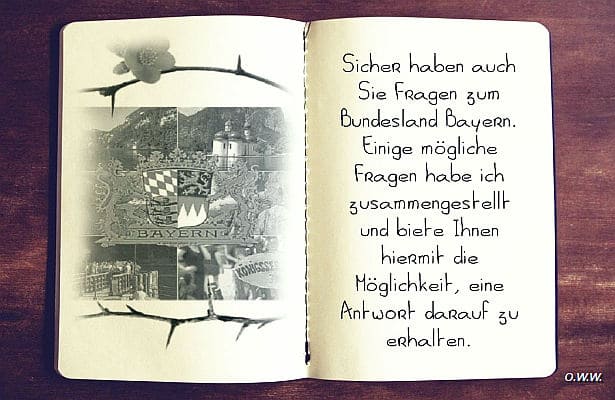 BAYERN
KÖNIGSS
Sicher haben auch
Sie Fragen zum
Bundesland Bayern.
Einige mögliche
Fragen habe ich
zusammengestellt
und biete Ihnen
hiermit die
Möglichkeit, eine
Antwort darauf zu
erhalten.
O.W.W.